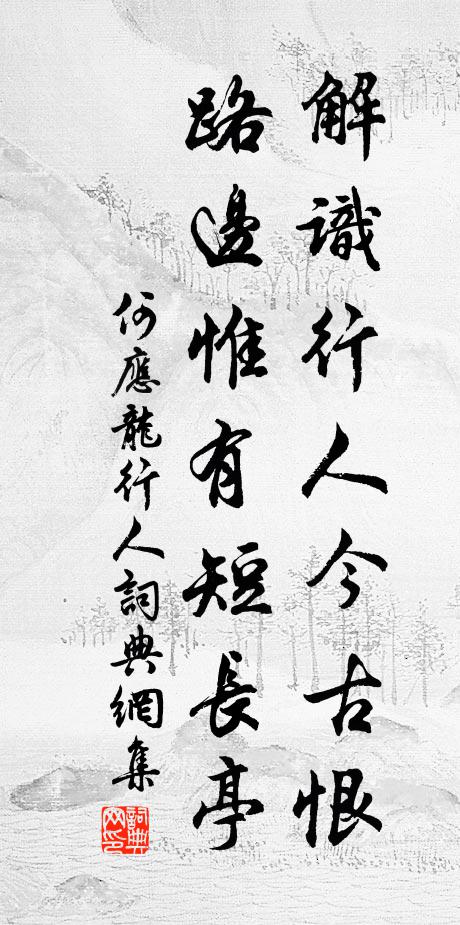 解識行人今古恨
路邊惟有短長亭
何應龍行人詞典網集
詞典網印